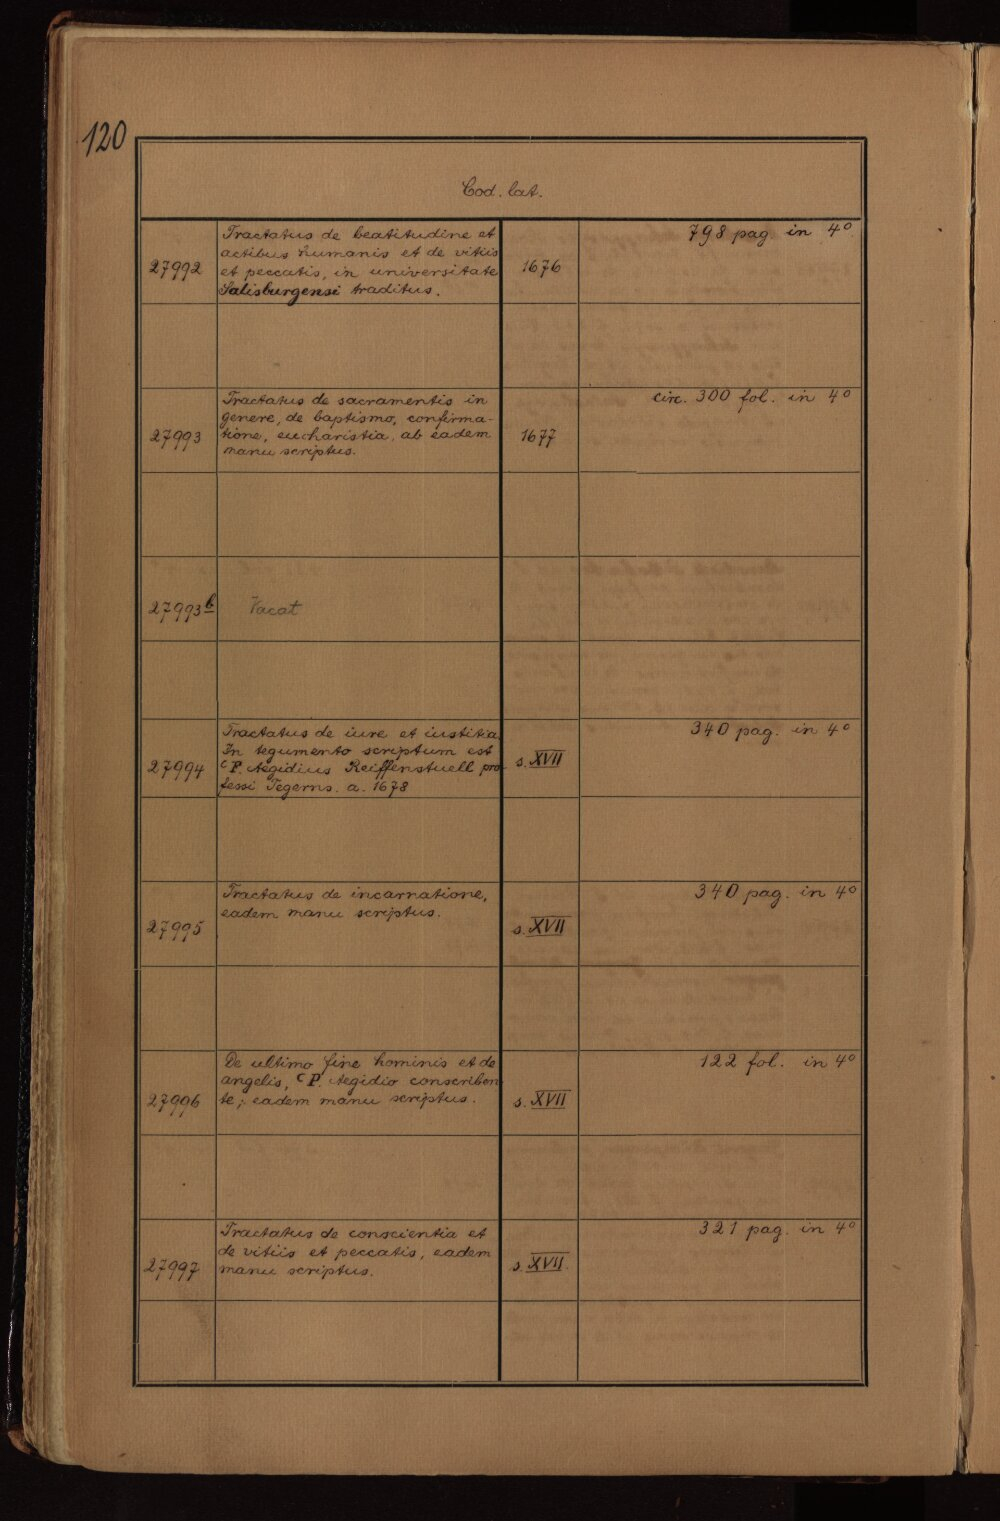 120
Cod. lat.
27992
Tractatus de beatitudine et
actibus humanis et de vitiis
et peccatis, in universitate
Salisburgensi traditus.
1676
798 pag in 4º
27993
Tractatus de sacramentis in
genere, de baptismo, confirma-
tione, eucharistia, ab eadem
manu scriptus.
1677
circ. 300 fol. in 4º
27993b
Vacat
27994
Tractatus de iure et iustitia
In tegumento scriptum est
P. Aegidius Reiffenstuell pro-
fessi Tegerns. a. 1678
s. XVII
340 pag. in 4º
27995
Tractatus de incarnatione,
eadem manu scriptus.
s. XVII
340 pag. in 4º
27996
De ultimo fine hominis et de
angelis, P. Aegidio conscriben
te, eadem manu scriptus.
s. XVII
122 fol. in 4º
27997
Tractatus de conscientia et
de vitiis et peccatis, eadem
manu scriptus.
s. XVII
321 pag. in 4º